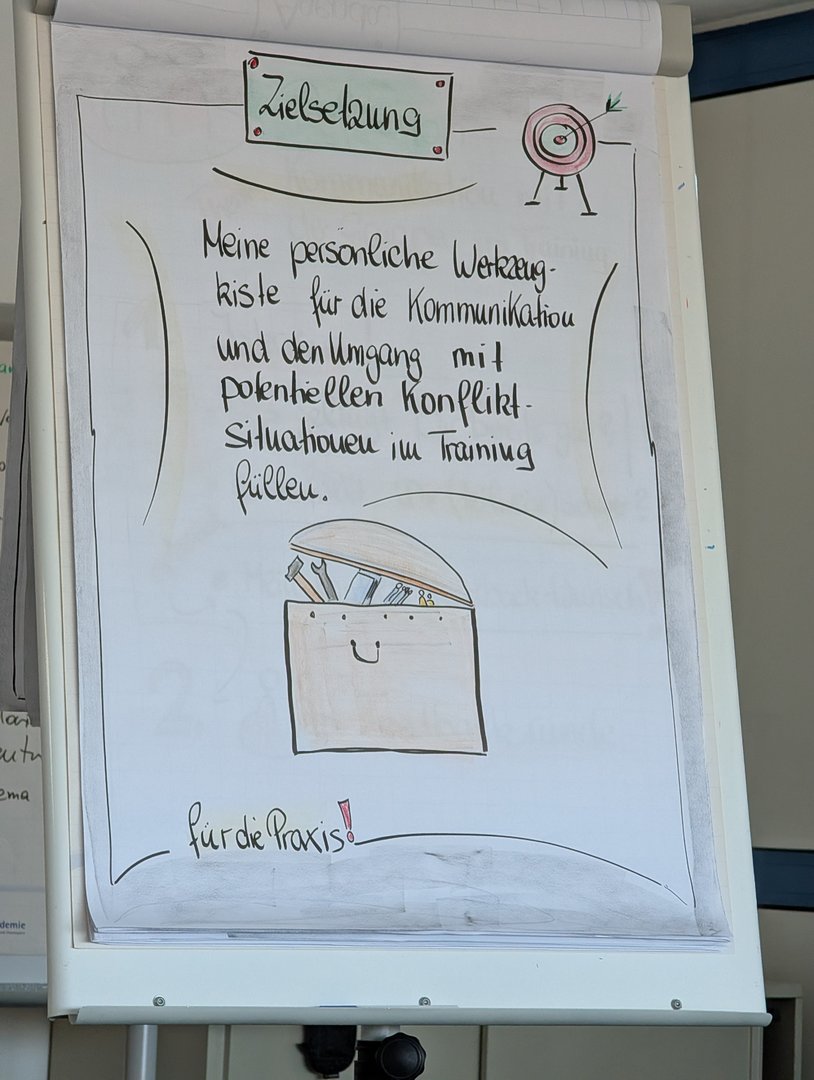 Zielsetzung
Meine persönliche Werkzeug-
kiste für die Kommunikation
und den Umgang mit
potentiellen Konflikt-
situationen im Training
füllen.
für die Praxis!
ema
demie